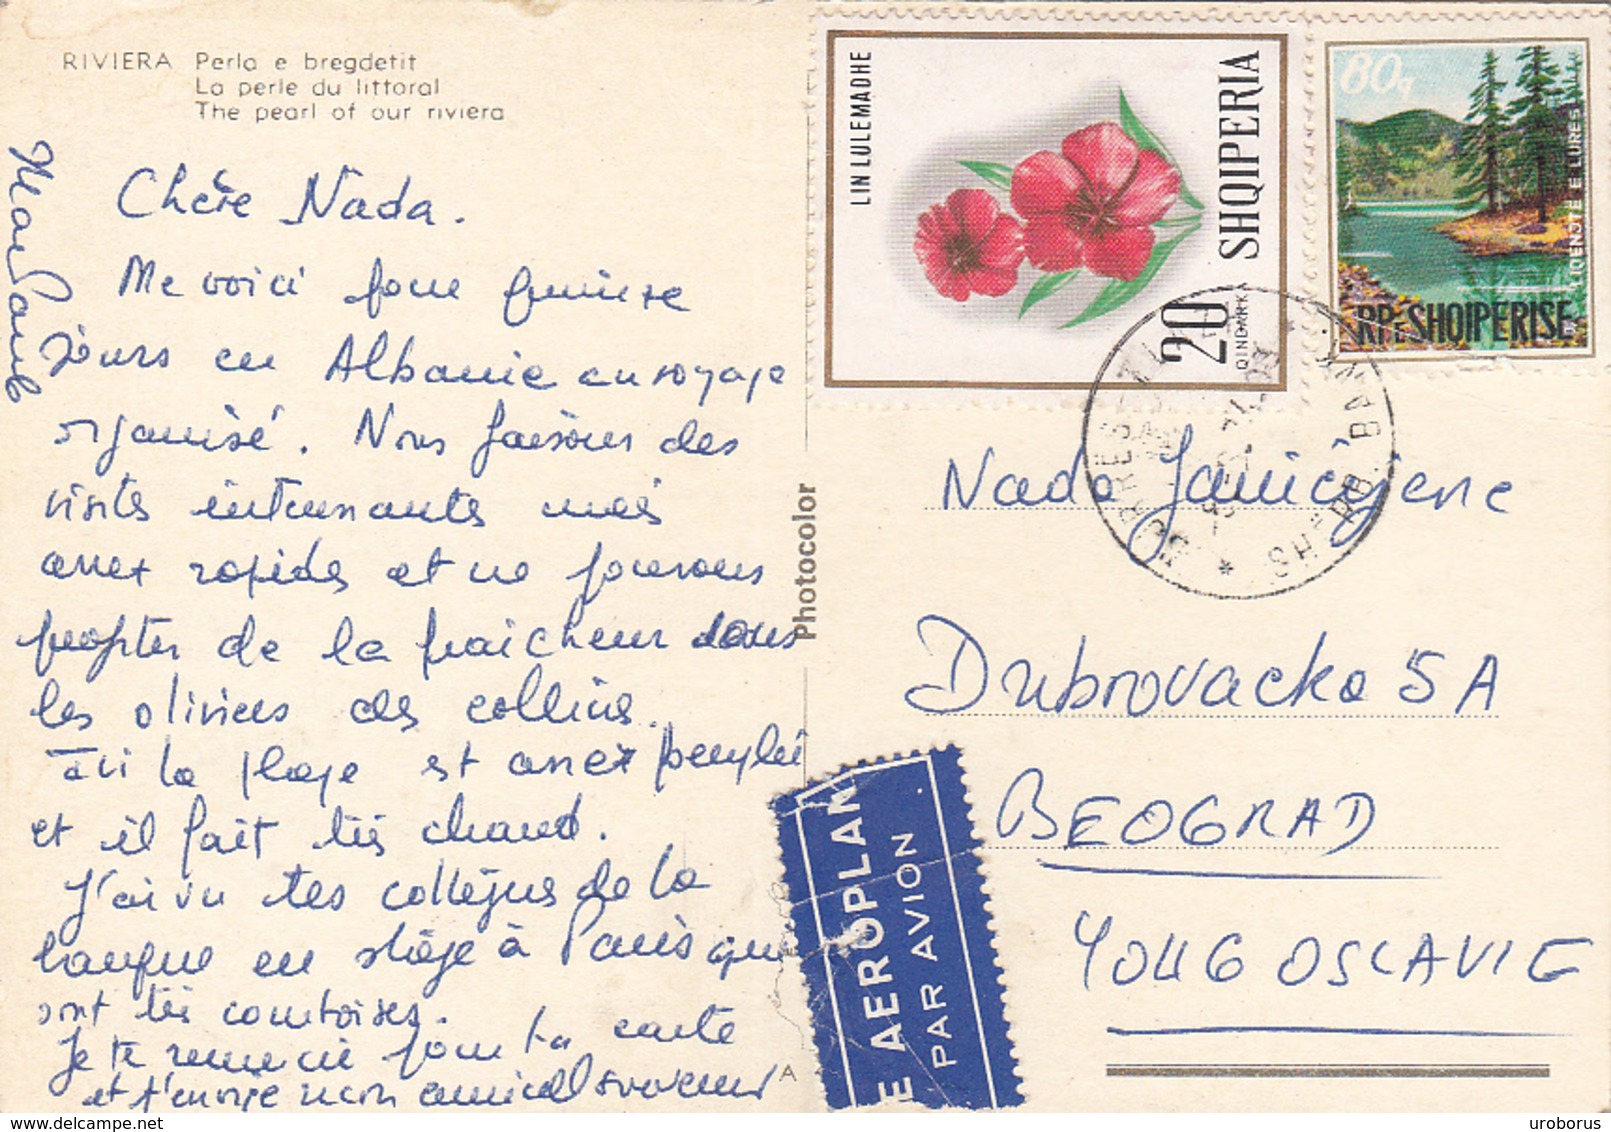 RIVIERA Perla e bregdetit
La perle du littoral
The pearl of our riviera
Chère Nada.
Me voici pour quinze
jours en Albanie en voyage
organisé. Nous faisons des
visites intéressantes mais
assez rapides et ne pouvons
profiter de la fraicheur dans
les oliviers des collines.
Ici la plage est assez peuplée
et il fait très chaud.
J'ai vu tes collègues de la
banque en stage à Paris qui
sont très courtoises.
Je te remercie pour ta carte
et t'envoie mon amical souvenir
Photocolor
A
LIN LULEMADHE
20
QINDARKA
SHQIPERIA
80q
LIQENJTË E LURËS
RP E SHQIPERISE
DURRES
Nada
Dubrovacka 5A
BEOGRAD
YOUGOSLAVIE
AEROPLAN
PAR AVION
uroborus